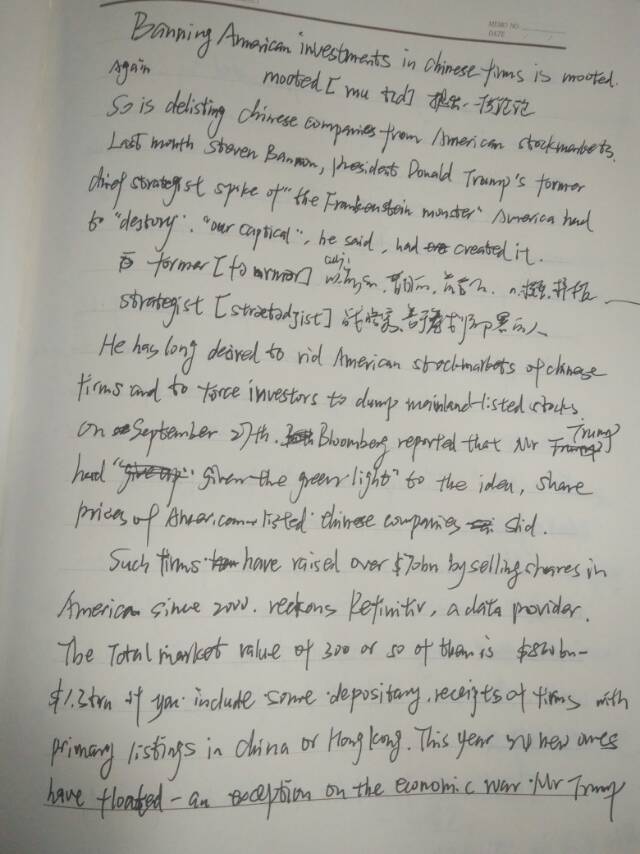 MEMO NO.
DATE
Banning American investments in Chinese firms is mooted.
Again mooted [mu tɪd] 提出
So is delisting Chinese companies from American stockmarkets.
Last month Steven Bannon, president Donald Trump's former
chief strategist spike of "the Frankenstein monster" America had
to "destory". "our captical", he said, had created it.
former
strategist 战略家
He has long desired to rid American stockmarkets of chinese
firms and to force investors to dump mainland-listed stocks.
on September 27th. Bloomberg reported that Mr Trump
had "given the green light" to the idea, share
prices of American-listed chinese companies slid.
Such firms have raised over $70bn by selling shares in
American since 2000. reckons Refinitiv, a data provider.
The Total market value of 300 or so of them is
$1.3trn if you include some depositary receipts of firms with
primary listings in China or Hong Kong. This year new ones
have floated - an exception on the economic war Mr Trump